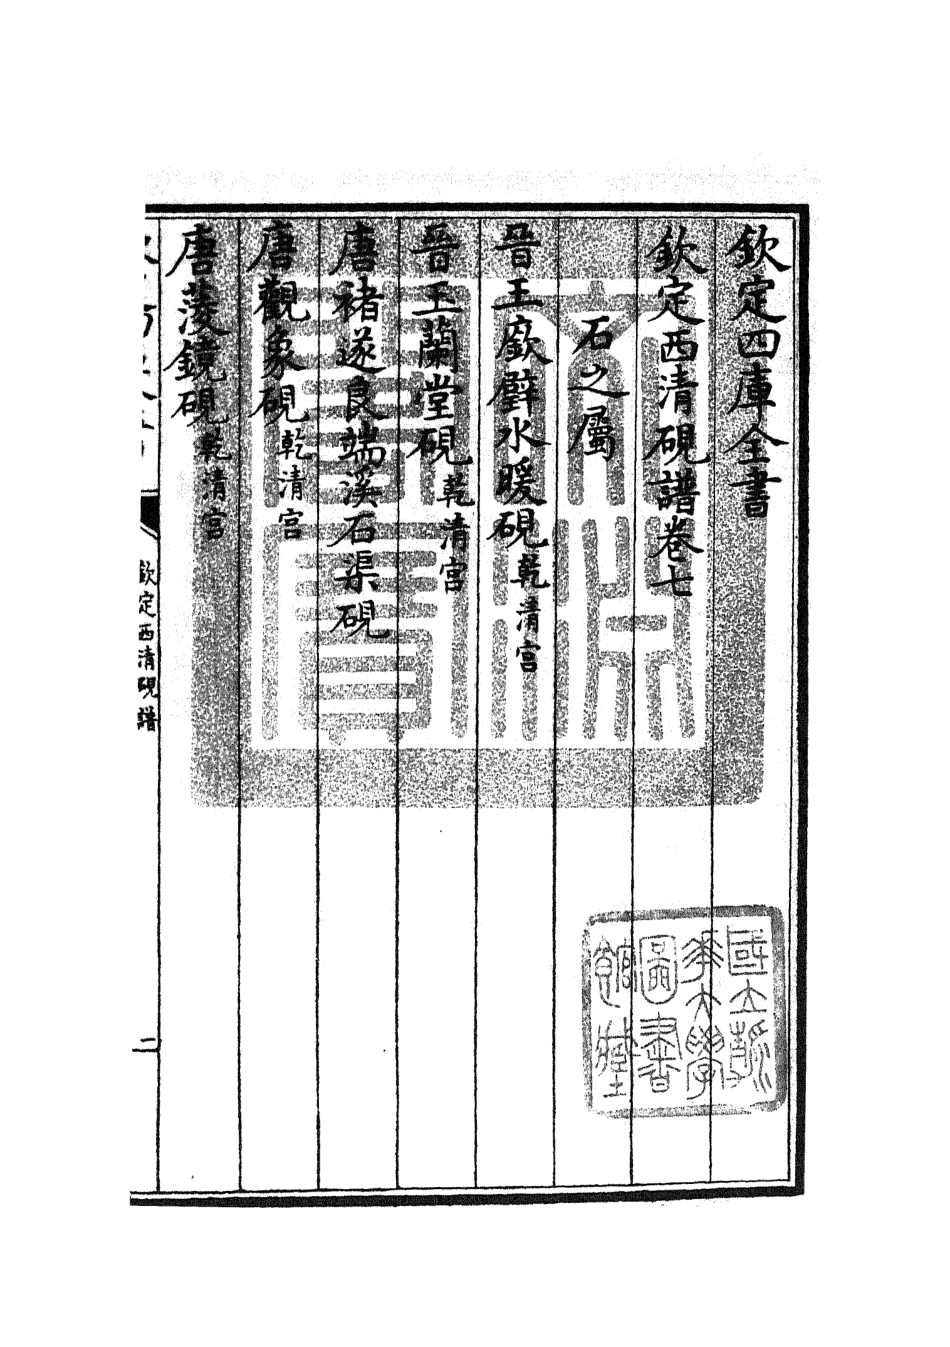 欽定四庫全書
欽定西清硯譜卷七
石之屬
晉王廞璧水暖硯乾清宮
晉玉蘭堂硯乾清宮
唐褚遂良端溪石渠硯
唐觀象硯乾清宮
唐菱鏡硯乾清宮
欽定西清硯譜
二
國立清華大學圖書館藏
文淵閣寶